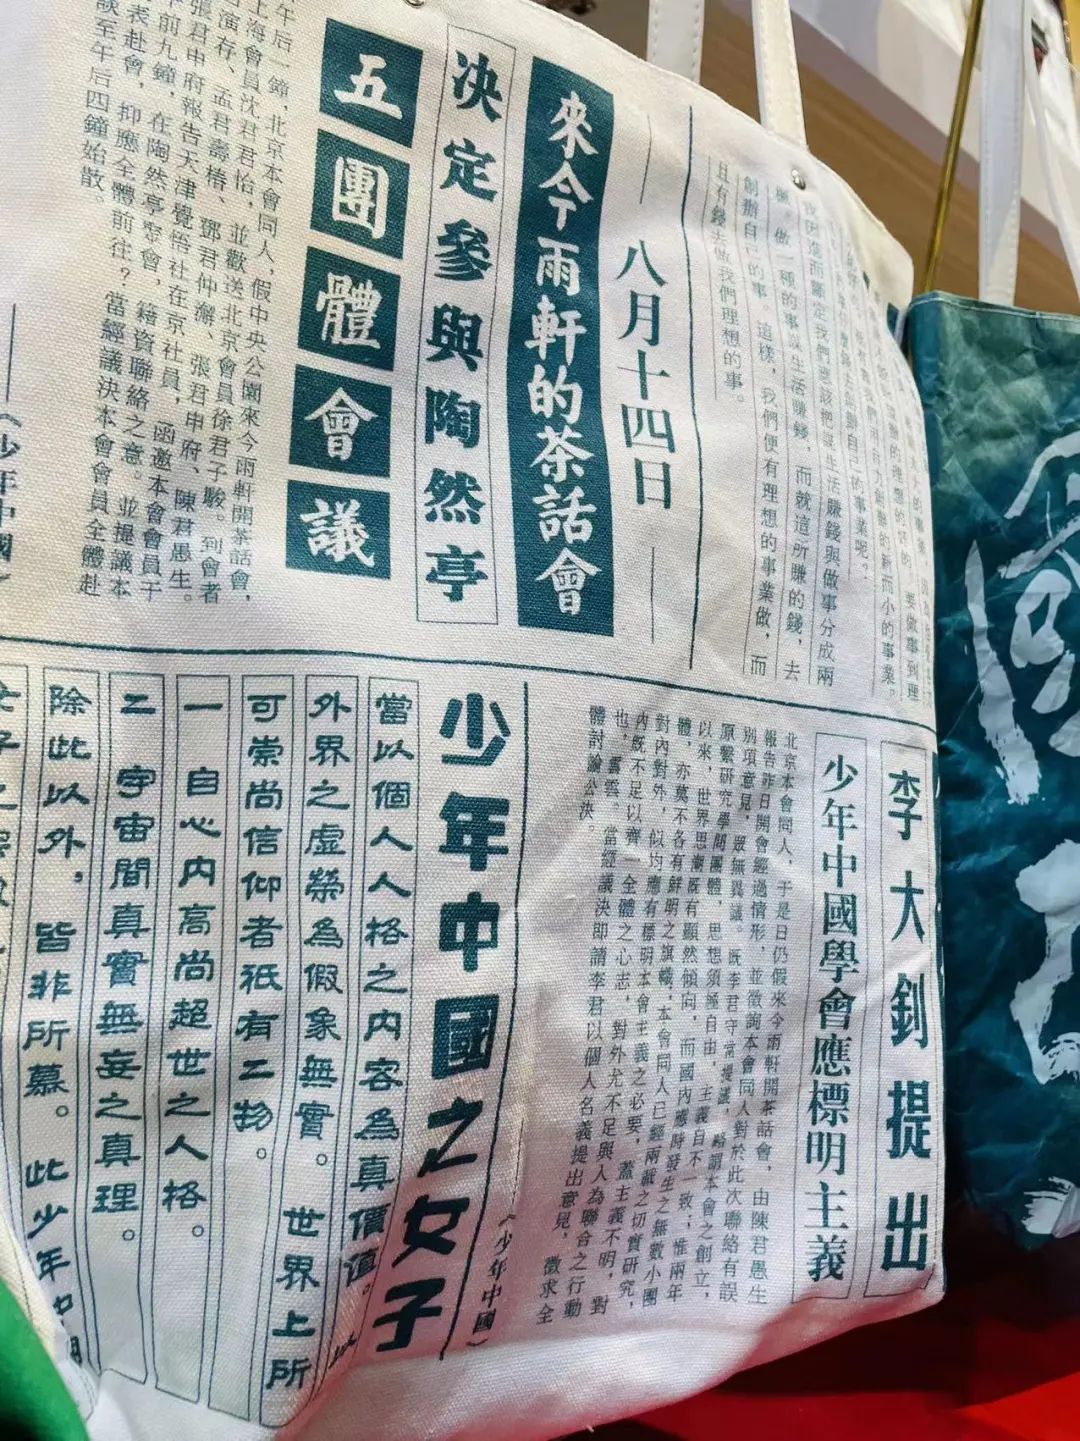 創辦自己的事。這樣，我們便有理想的事業做，而
且有錢去做我們理想的事。
八月十四日
來今雨軒的茶話會
決定參與陶然亭
五團體會議
午后一鐘，北京本會同人，假中央公園來今雨軒開茶話會，
上海會員沈君君怡，並歡送北京會員徐君子駿。到會者
演存、孟君壽椿、鄧君仲澥、張君申府、陳君愚生。
張君申府報告天津覺悟社在京社員，函邀本會會員于
前九鐘，在陶然亭聚會，藉資聯絡之意。並提議本
表赴會，抑應全體前往？當經議決本會會員全體赴
談至午后四鐘始散。
《少年中國》
李大釗提出
少年中國學會應標明主義
北京本會同人，于是日仍假來今雨軒開茶話會，由陳君愚生
報告昨日開會經過情形，並徵詢本會同人對於此次聯絡有誤
別項意見，眾無異議。既李君守常提議，略謂本會之創立，
原繫研究學問團體，思想須極自由，主義自不一致；惟兩年
以來，世界思潮既有顯然傾向，而國內應時發生之無數小團
體，亦莫不各有鮮明之旗幟，本會同人已經兩載之切實研究，
對內對外，似均應有標明本會主義之必要，蓋主義不明，對
內既不足以齊一全體之心志，對外尤不足與人為聯合之行動
也，雲雲。當經議決即請李君以個人名義提出意見，徵求全
體討論公決。
《少年中國》
少年中國之女子
當以個人人格之內容為真價值。
外界之虛榮為假象無實。世界上所
可崇尚信仰者祇有二物。
一 自心內高尚超世之人格。
二 宇宙間真實無妄之真理。
除此以外，皆非所慕。此少年中國
女子之